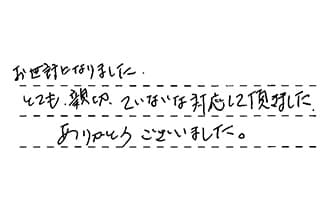 お世話になりました.
とても.親切.ていねいな対応して頂きました.
ありがとうございました。